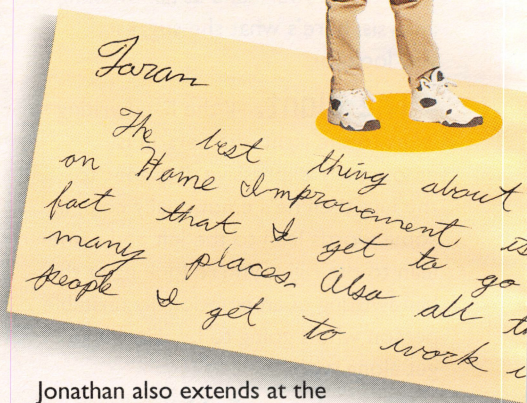 Taran
The best thing about
on Home Improvement is
fact that I get to go
many places. Also all
people I get to work
Jonathan also extends at the